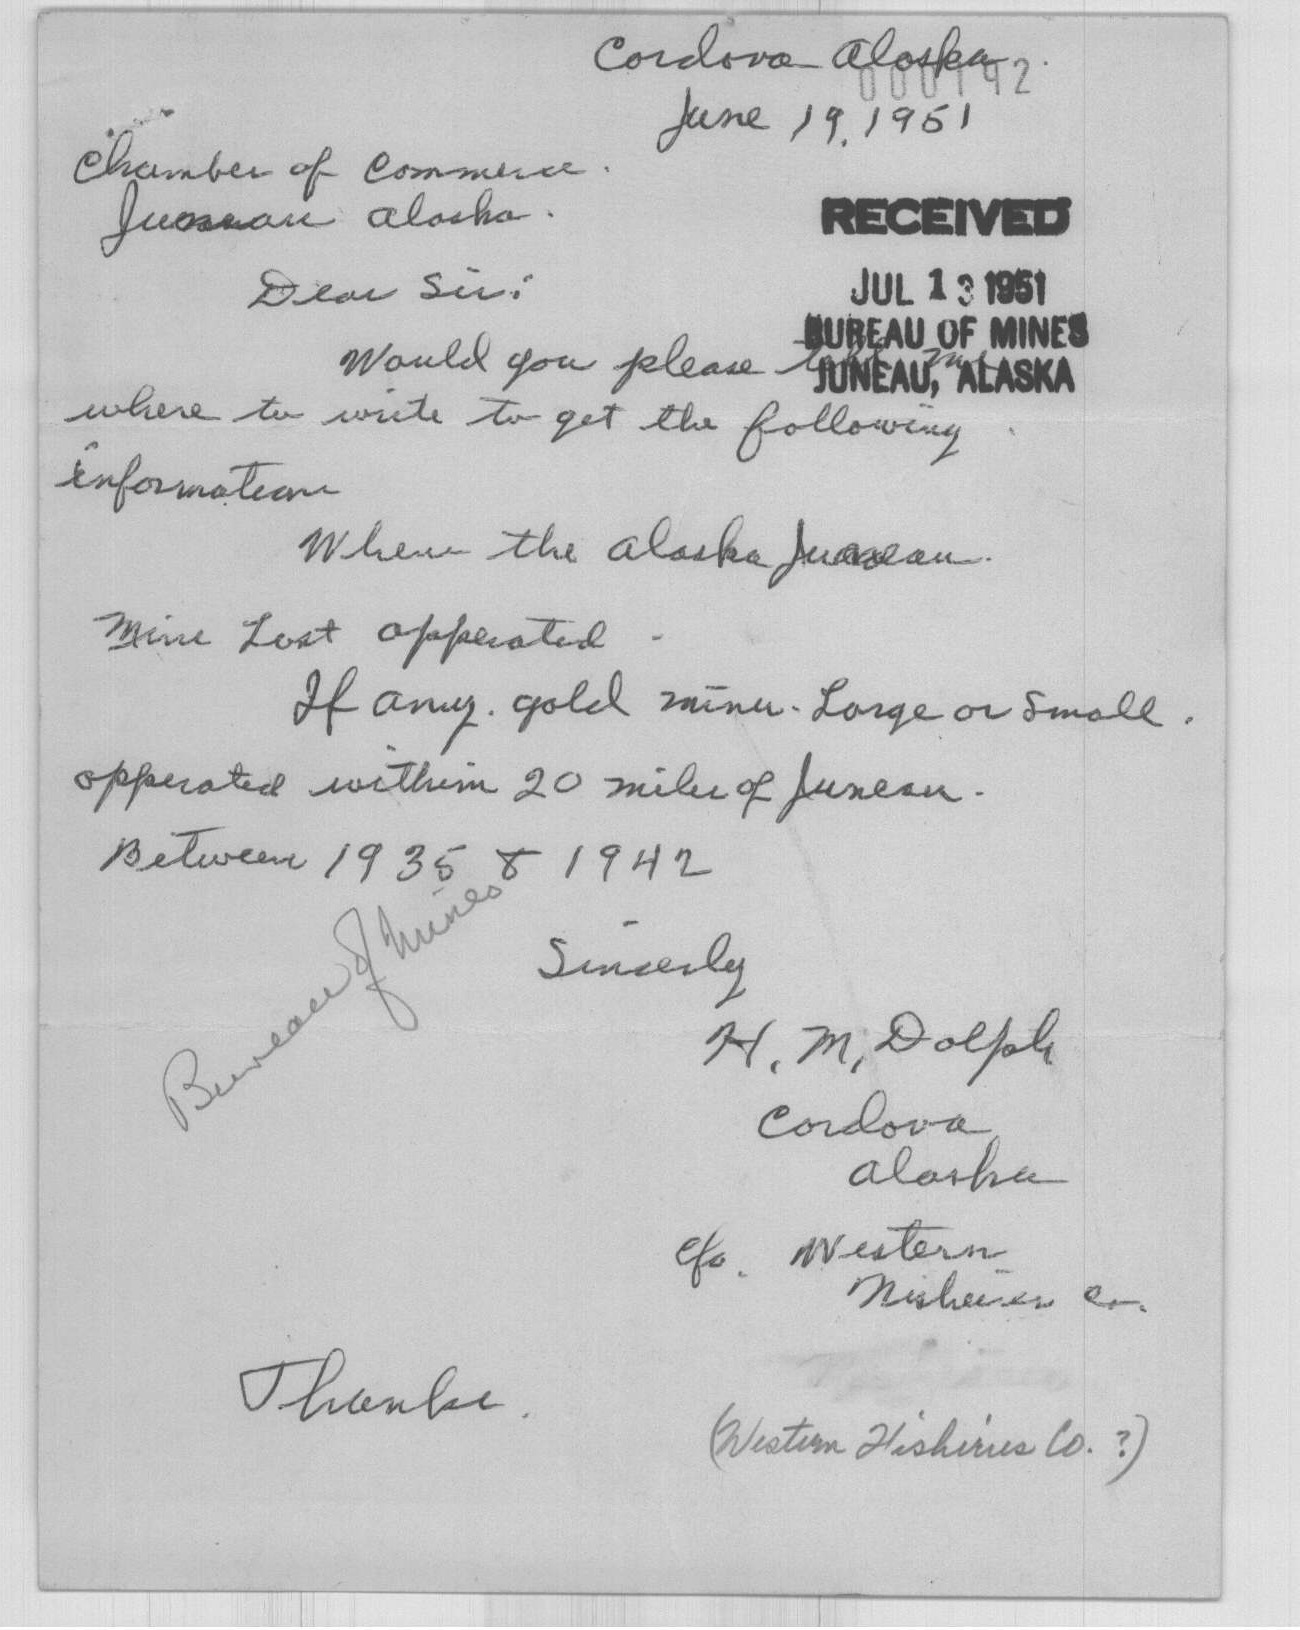 Cordova Alaska.
000192
June 19, 1951
Chamber of Commerce.
Juneau Alaska.
RECEIVED
JUL 13 1951
BUREAU OF MINES
JUNEAU, ALASKA
Dear Sir:
Would you please tell me
where to write to get the following
information
When the Alaska Juneau.
Mine Last opperated.
If any. gold mines. Large or Small.
opperated within 20 miles of Juneau.
Between 1935 & 1942
Bureau of Mines
Sincerly
H. M. Dolph
Cordova
Alaska
c/o. Western
Co.
Thanks.
(Western Fisheries Co. ?)